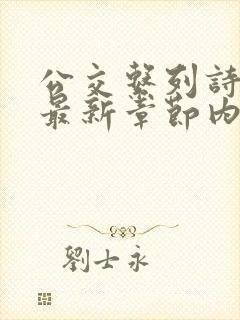 公交系列詩
最新章節内
劉士永